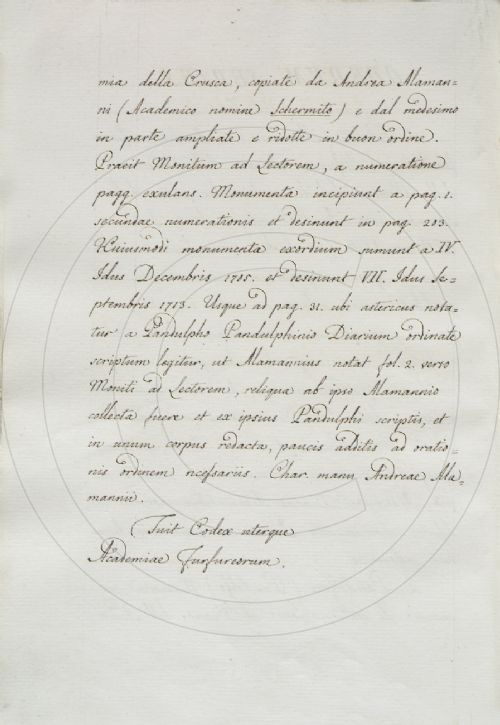 mia della Crusca, copiate da Andrea Alaman=
ni (Academico nomine Schermito) e dal medesimo
in parte ampliate e ridotte in buon ordine.
Praeit Monitum ad Lectorem, a numeratione
pagg. exulans. Monumenta incipiunt a pag. 1.
secundae numerationis et desinunt in pag. 213.
Huiusmodi monumenta exordium sumunt a IV.
Idus Decembris 1705. et desinunt VII. Idus Se=
ptembris 1713. Usque ad pag. 31. ubi astericus nota=
tur a Pandulpho Pandulphinio Diarium ordinate
scriptum legitur, ut Alamannius notat fol. 2. verso
Moniti ad Lectorem, reliqua ab ipso Alamannio
collecta fuere et ex ipsius Pandulphi scriptis, et
in unum corpus redacta, paucis additis ad oratio=
nis ordinem necessariis. Char. manu Andreae Ala=
mannii.
Fuit Codex uterque
Academiae Furfureorum.